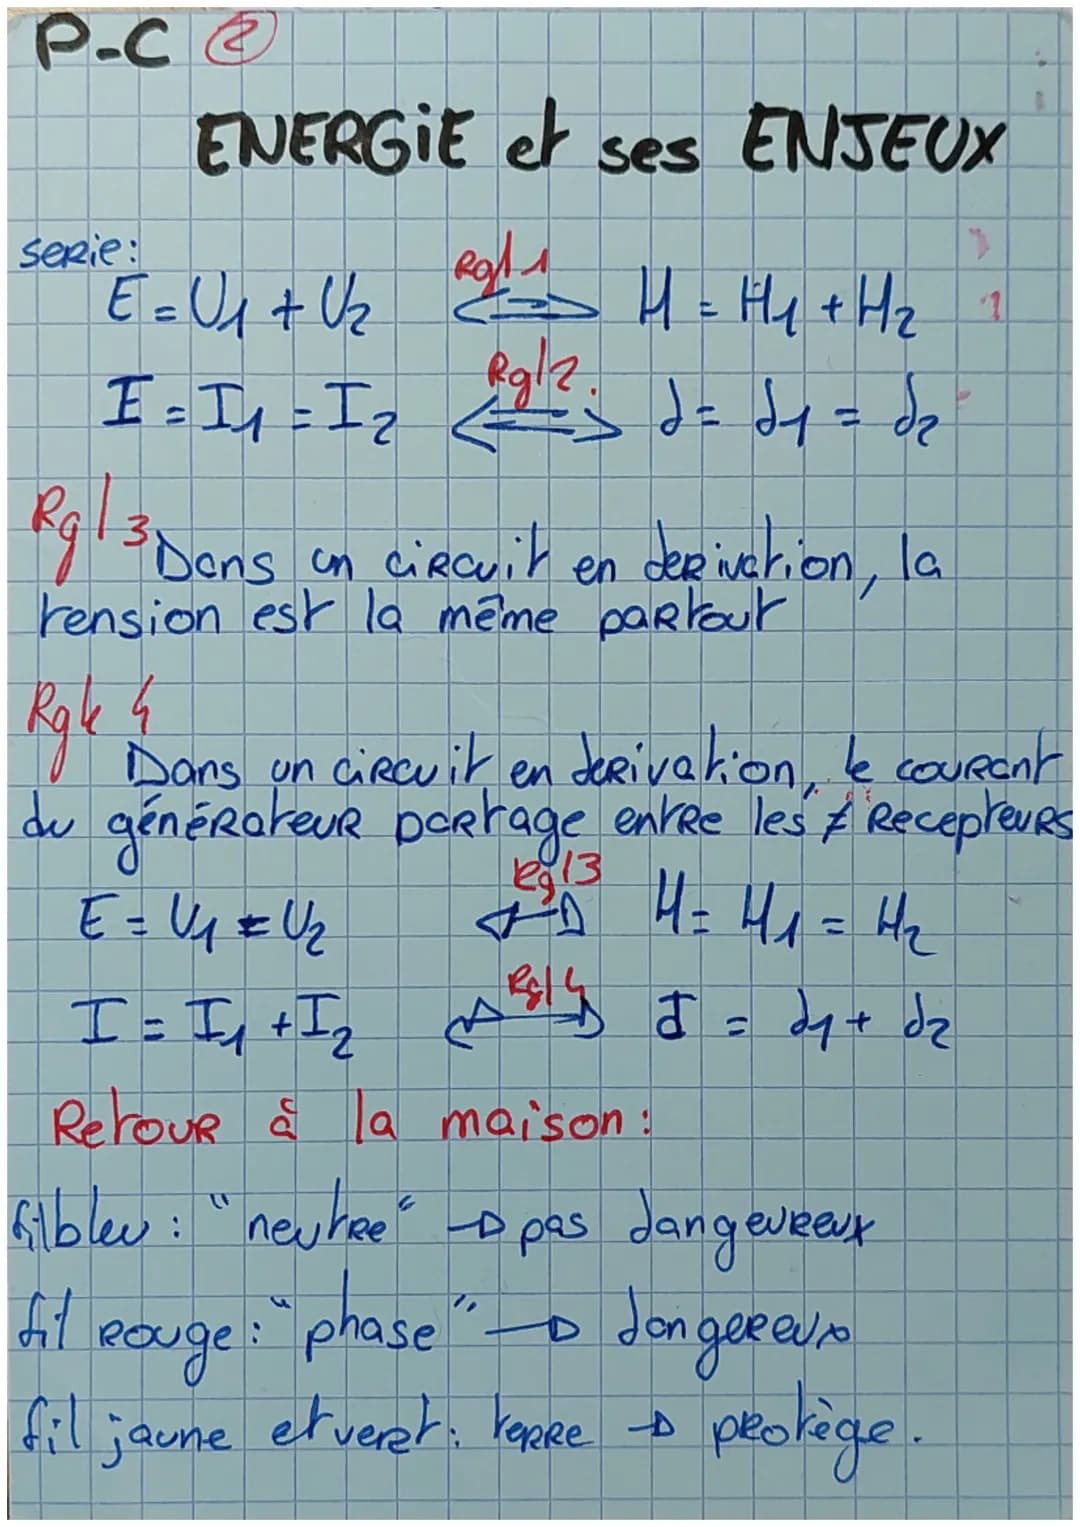 P-C ②
ENERGIE et ses ENJEUX
serie:
E = U1 + U2 Rgl 1 H = H1 + H2
I = I1 = I2 Rgl 2. d = d1 = d2
Rgl 3
Dans un circuit en derivation, la
tension est la même partout
Rgle 4
Dans un circuit en derivation, le courant
du générateur partage entre les ≠ Recepteurs
E = U1 = U2 Rgl 3 H = H1 = H2
I = I1 + I2 Rgl 4 d = d1 + d2
Retour à la maison:
fil bleu: "neutre" → pas dangeureux
fil rouge: "phase" → dangereux
fil jaune et vert: terre → protège.